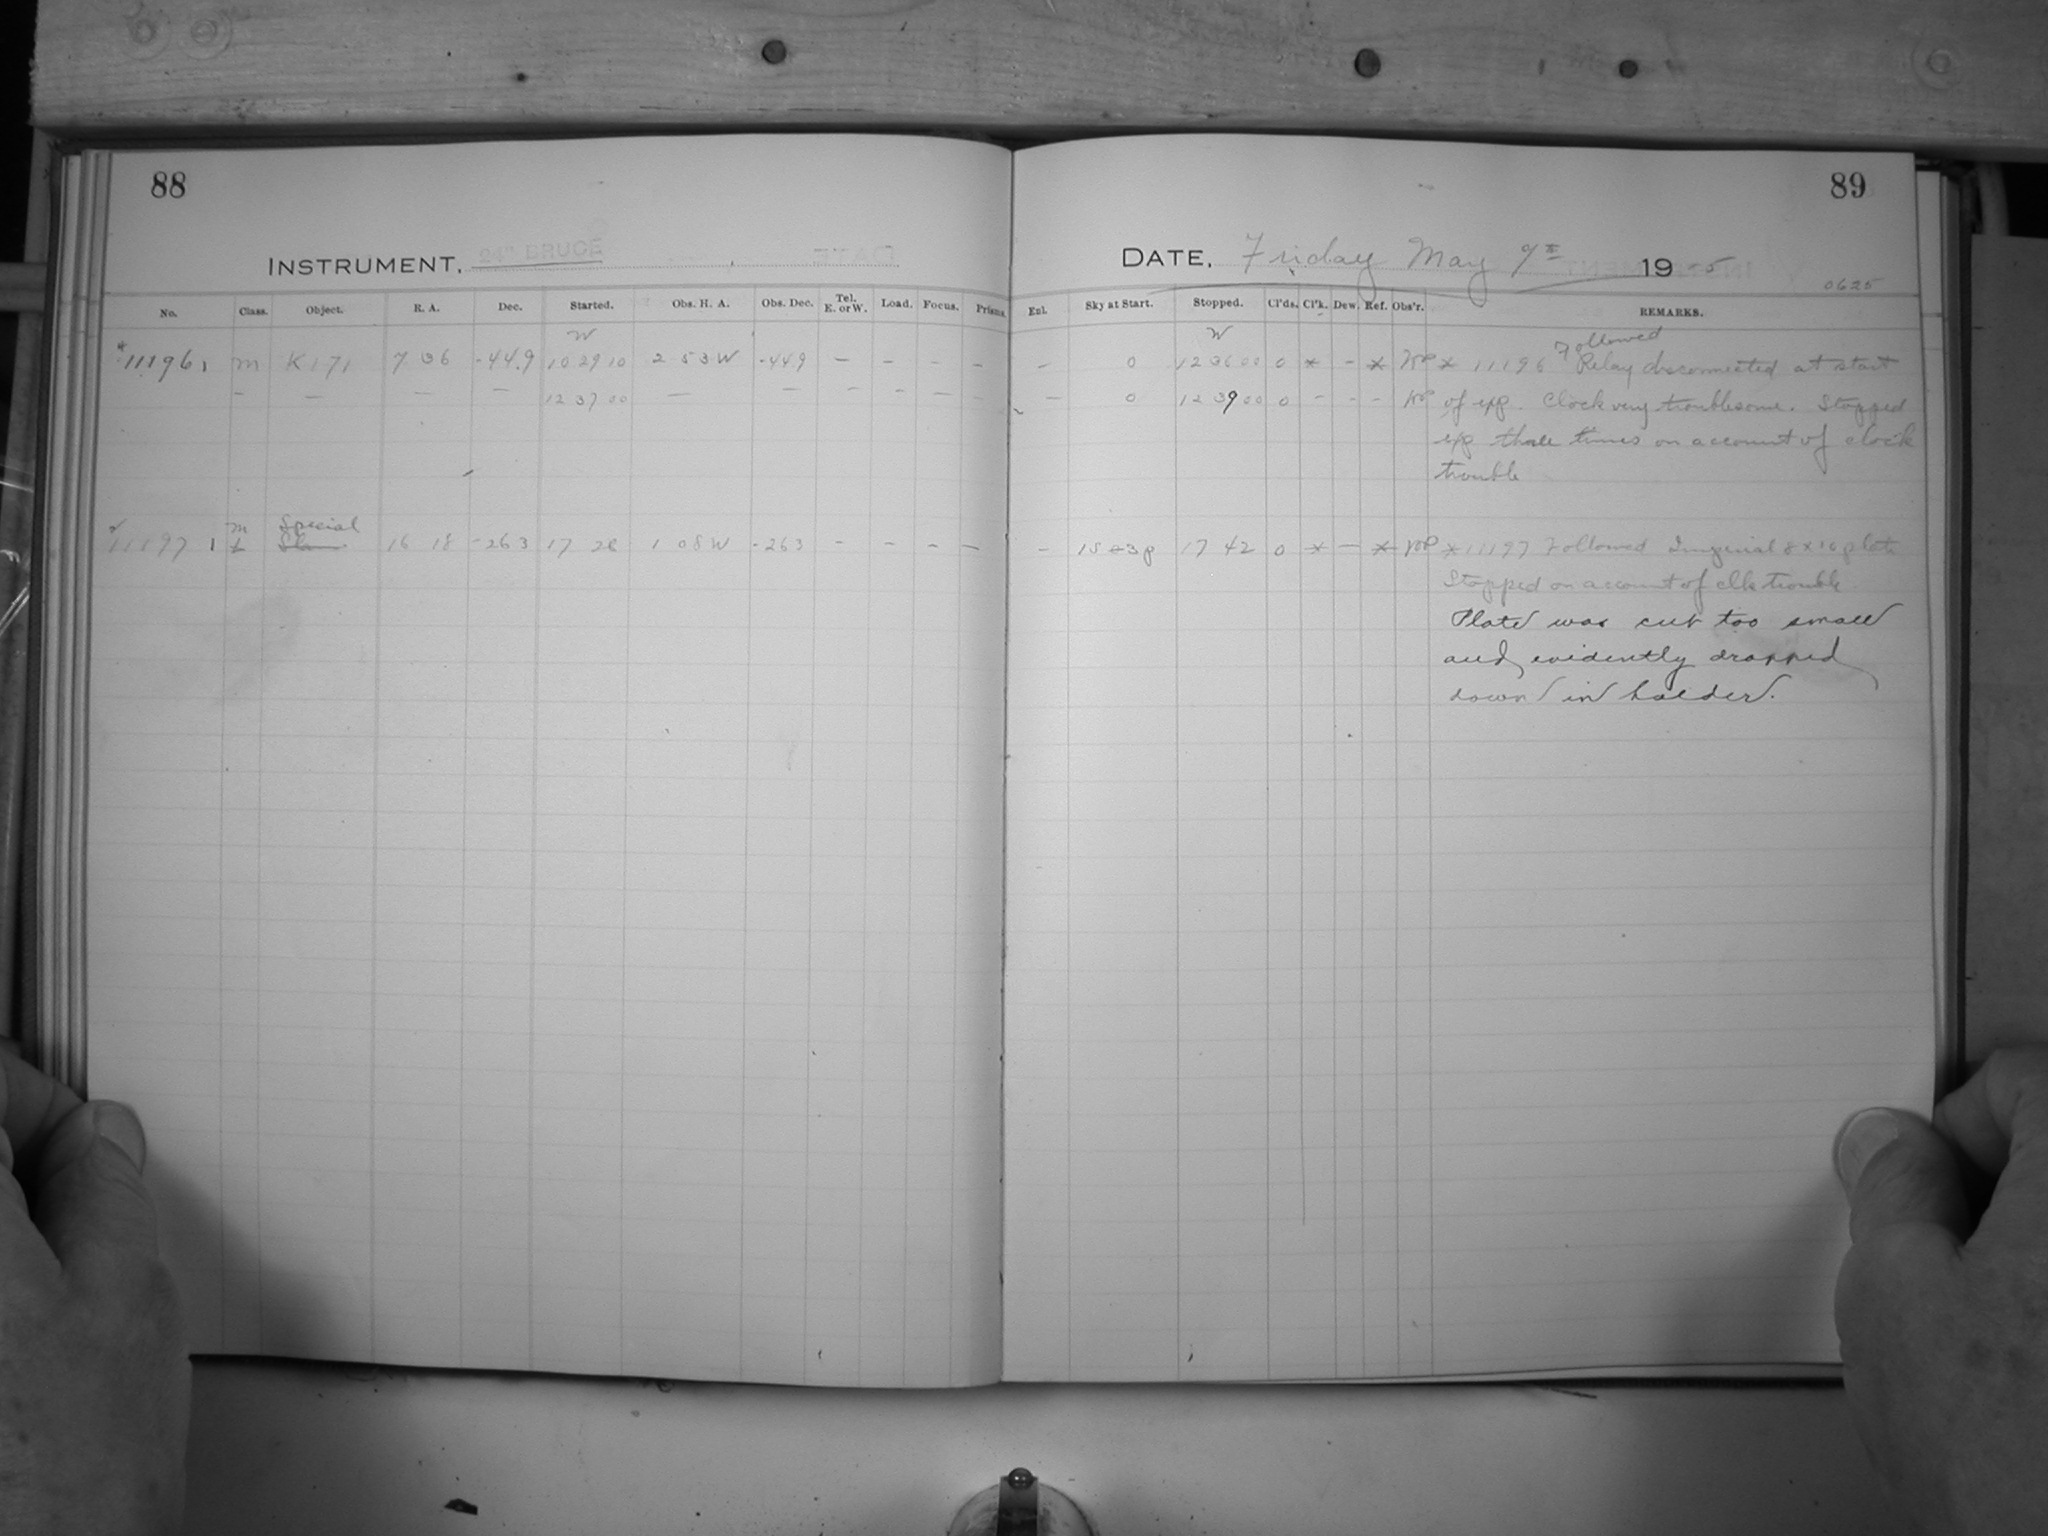 88
89
INSTRUMENT, 24" BRUCE
DATE, Friday May 9th 19
0625
No. Class. Object. R. A. Dec. Started. Obs. H. A. Obs. Dec. Tel. E. or W. Load. Focus. Prisms.
Enl. Sky at Start. Stopped. Cl'ds. Cl'k. Dew. Ref. Obs'r. REMARKS.
W
W
Followed
*11196 1 m K171 7 36 -44.9 10 29 10 2 53W -449 - - - -
- 0 12 36 00 0 * - * * 11196 Relay disconnected at start
- - - - 12 37 00 - - - - - -
- 0 12 39 00 0 - - - of exp. Clock very troublesome. Stopped
exp three times on account of clock
trouble
m Special
11197 1 L 16 18 -263 17 28 1 08W -263 - - - -
- 17 42 0 * - * *11197 Followed Imperial 8x10 plate
Stopped on account of clk trouble
Plate was cut too small
and evidently dropped
down in holder.